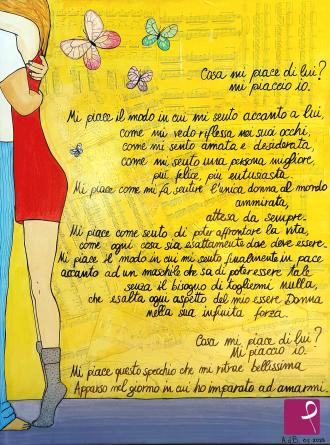 Cosa mi piace di lui?
mi piaccio io.
Mi piace il modo in cui mi sento accanto a lui,
come mi vedo riflessa nei suoi occhi,
come mi sento amata e desiderata,
come mi sento una persona migliore,
più felice, più entusiasta.
Mi piace come mi fa sentire l'unica donna al mondo
ammirata,
attesa da sempre.
Mi piace come sento di poter affrontare la vita,
come ogni cosa sia esattamente dove deve essere.
Mi piace il modo in cui mi sento finalmente in pace
accanto ad un maschile che sa di poter essere tale
senza il bisogno di togliermi nulla,
che esalta ogni aspetto del mio essere Donna
nella sua infinita forza.
Cosa mi piace di lui?
Mi piaccio io.
Mi piace questo specchio che mi ritrae bellissima
Apparso nel giorno in cui ho imparato ad amarmi.